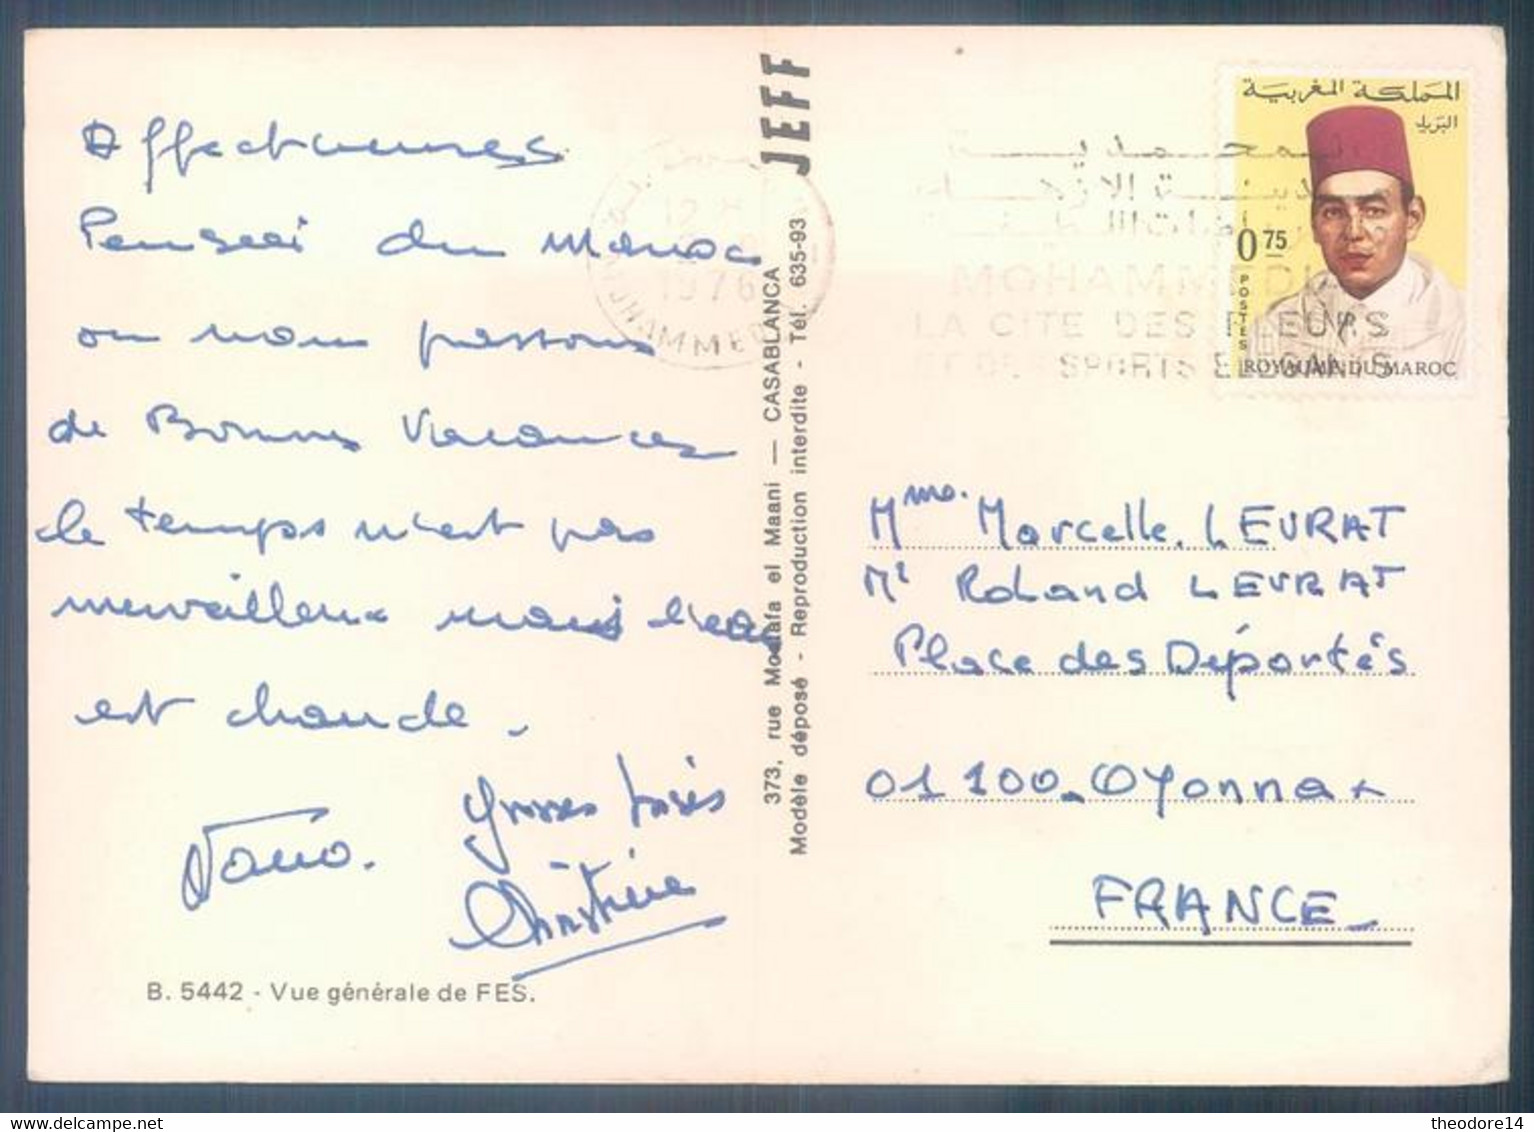 Affectueuses
Pensées du Maroc
ou nous passons
de Bonnes Vacances
le temps n'est pas
merveilleux mais l'eau
est chaude.
Grosses bises
Christine
B. 5442 - Vue générale de FES.
JEFF
373, rue Mostafa el Maani — CASABLANCA
Modèle déposé - Reproduction interdite - Tél. 635-93
1976
المملكة المغربية
البريد
0 75
POSTES
ROYAUME DU MAROC
LA CITE DES FLEURS
Mme. Marcelle. LEVRAT
Mr Roland LEVRAT
Place des Déportés
01100 - Oyonnax
FRANCE
theodore14